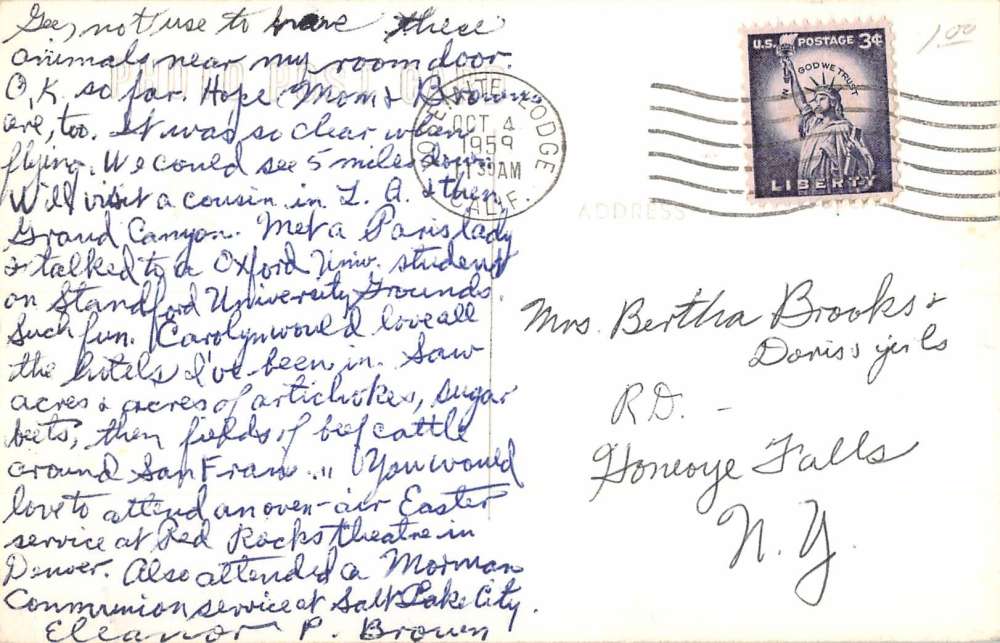 Gee, not use to have these
animals near my room door.
O.K. so far. Hope Mom & Browns
are, too. It was so clear when
flying. We could see 5 miles down.
Will visit a cousin in L.A. & then
Grand Canyon. Met a Paris lady
& talked to a Oxford Univ. student
on Standford University Grounds.
Such fun. Carolyn would love all
the hotels I've been in. Saw
acres & acres of artichokes, sugar
beets, then fields of beef cattle
around San Fran... You would
love to attend an oven-air Easter
service at Red Rocks theatre in
Denver. Also attended a Morman
Communion service at Salt Lake City.
Eleanor P. Brown
LODGE
OCT 4
1959
AM
CALIF.
ADDRESS
U.S. POSTAGE 3¢
IN GOD WE TRUST
LIBERTY
1.00
Mrs. Bertha Brooks &
Doris's girls
R.D. -
Honeoye Falls
N.Y.